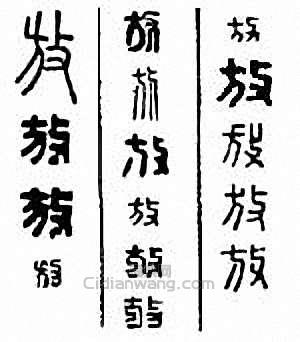 放放放放放
放放放放放放
放放放放
Cidianwang.com